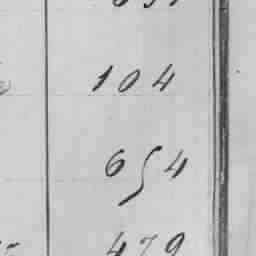 104
654
479